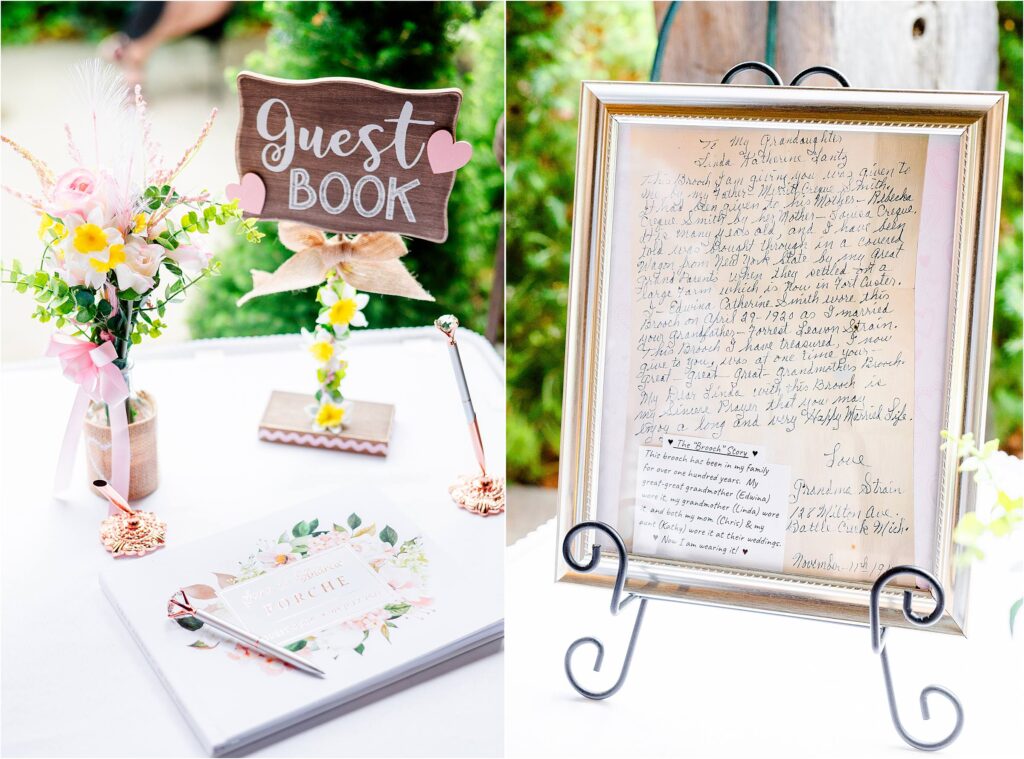 Guest
BOOK
Andrew
PORCHE
To My Grandaughter
Linda Katherine Lantz
This Brooch I am giving you was given to
me by my Father Merritt Creque Smith,
It had been given to his Mother - Rebecka
Creque Smith by her Mother - Louesa Creque.
It's many years old, and I have been
told was bought through in a covered
Wagon from New York State by my Great
Grand Parents when they settled on a
large Farm which is Now in Fort Custer.
I - Edwina Catherine Smith wore this
Brooch on April 29 - 1920 as I married
your Grandfather - Forrest Lawson Strain.
This Brooch I have treasured, I now
give to you, was at one time your -
Great - Great - Great - Grandmothers Brooch.
My Dear Linda with this Brooch is
my Sincere Prayer that you may
enjoy a long and very Happy Married Life.
Love
Grandma Strain
138 Wilton Ave.
Battle Creek Mich.
November - 11th
♥ The "Brooch" Story ♥
This brooch has been in my family
for over one hundred years. My
great-great grandmother (Edwina)
wore it, my grandmother (Linda) wore
it and both my mom (Chris) & my
aunt (Kathy) wore it at their weddings.
♥ Now I am wearing it! ♥